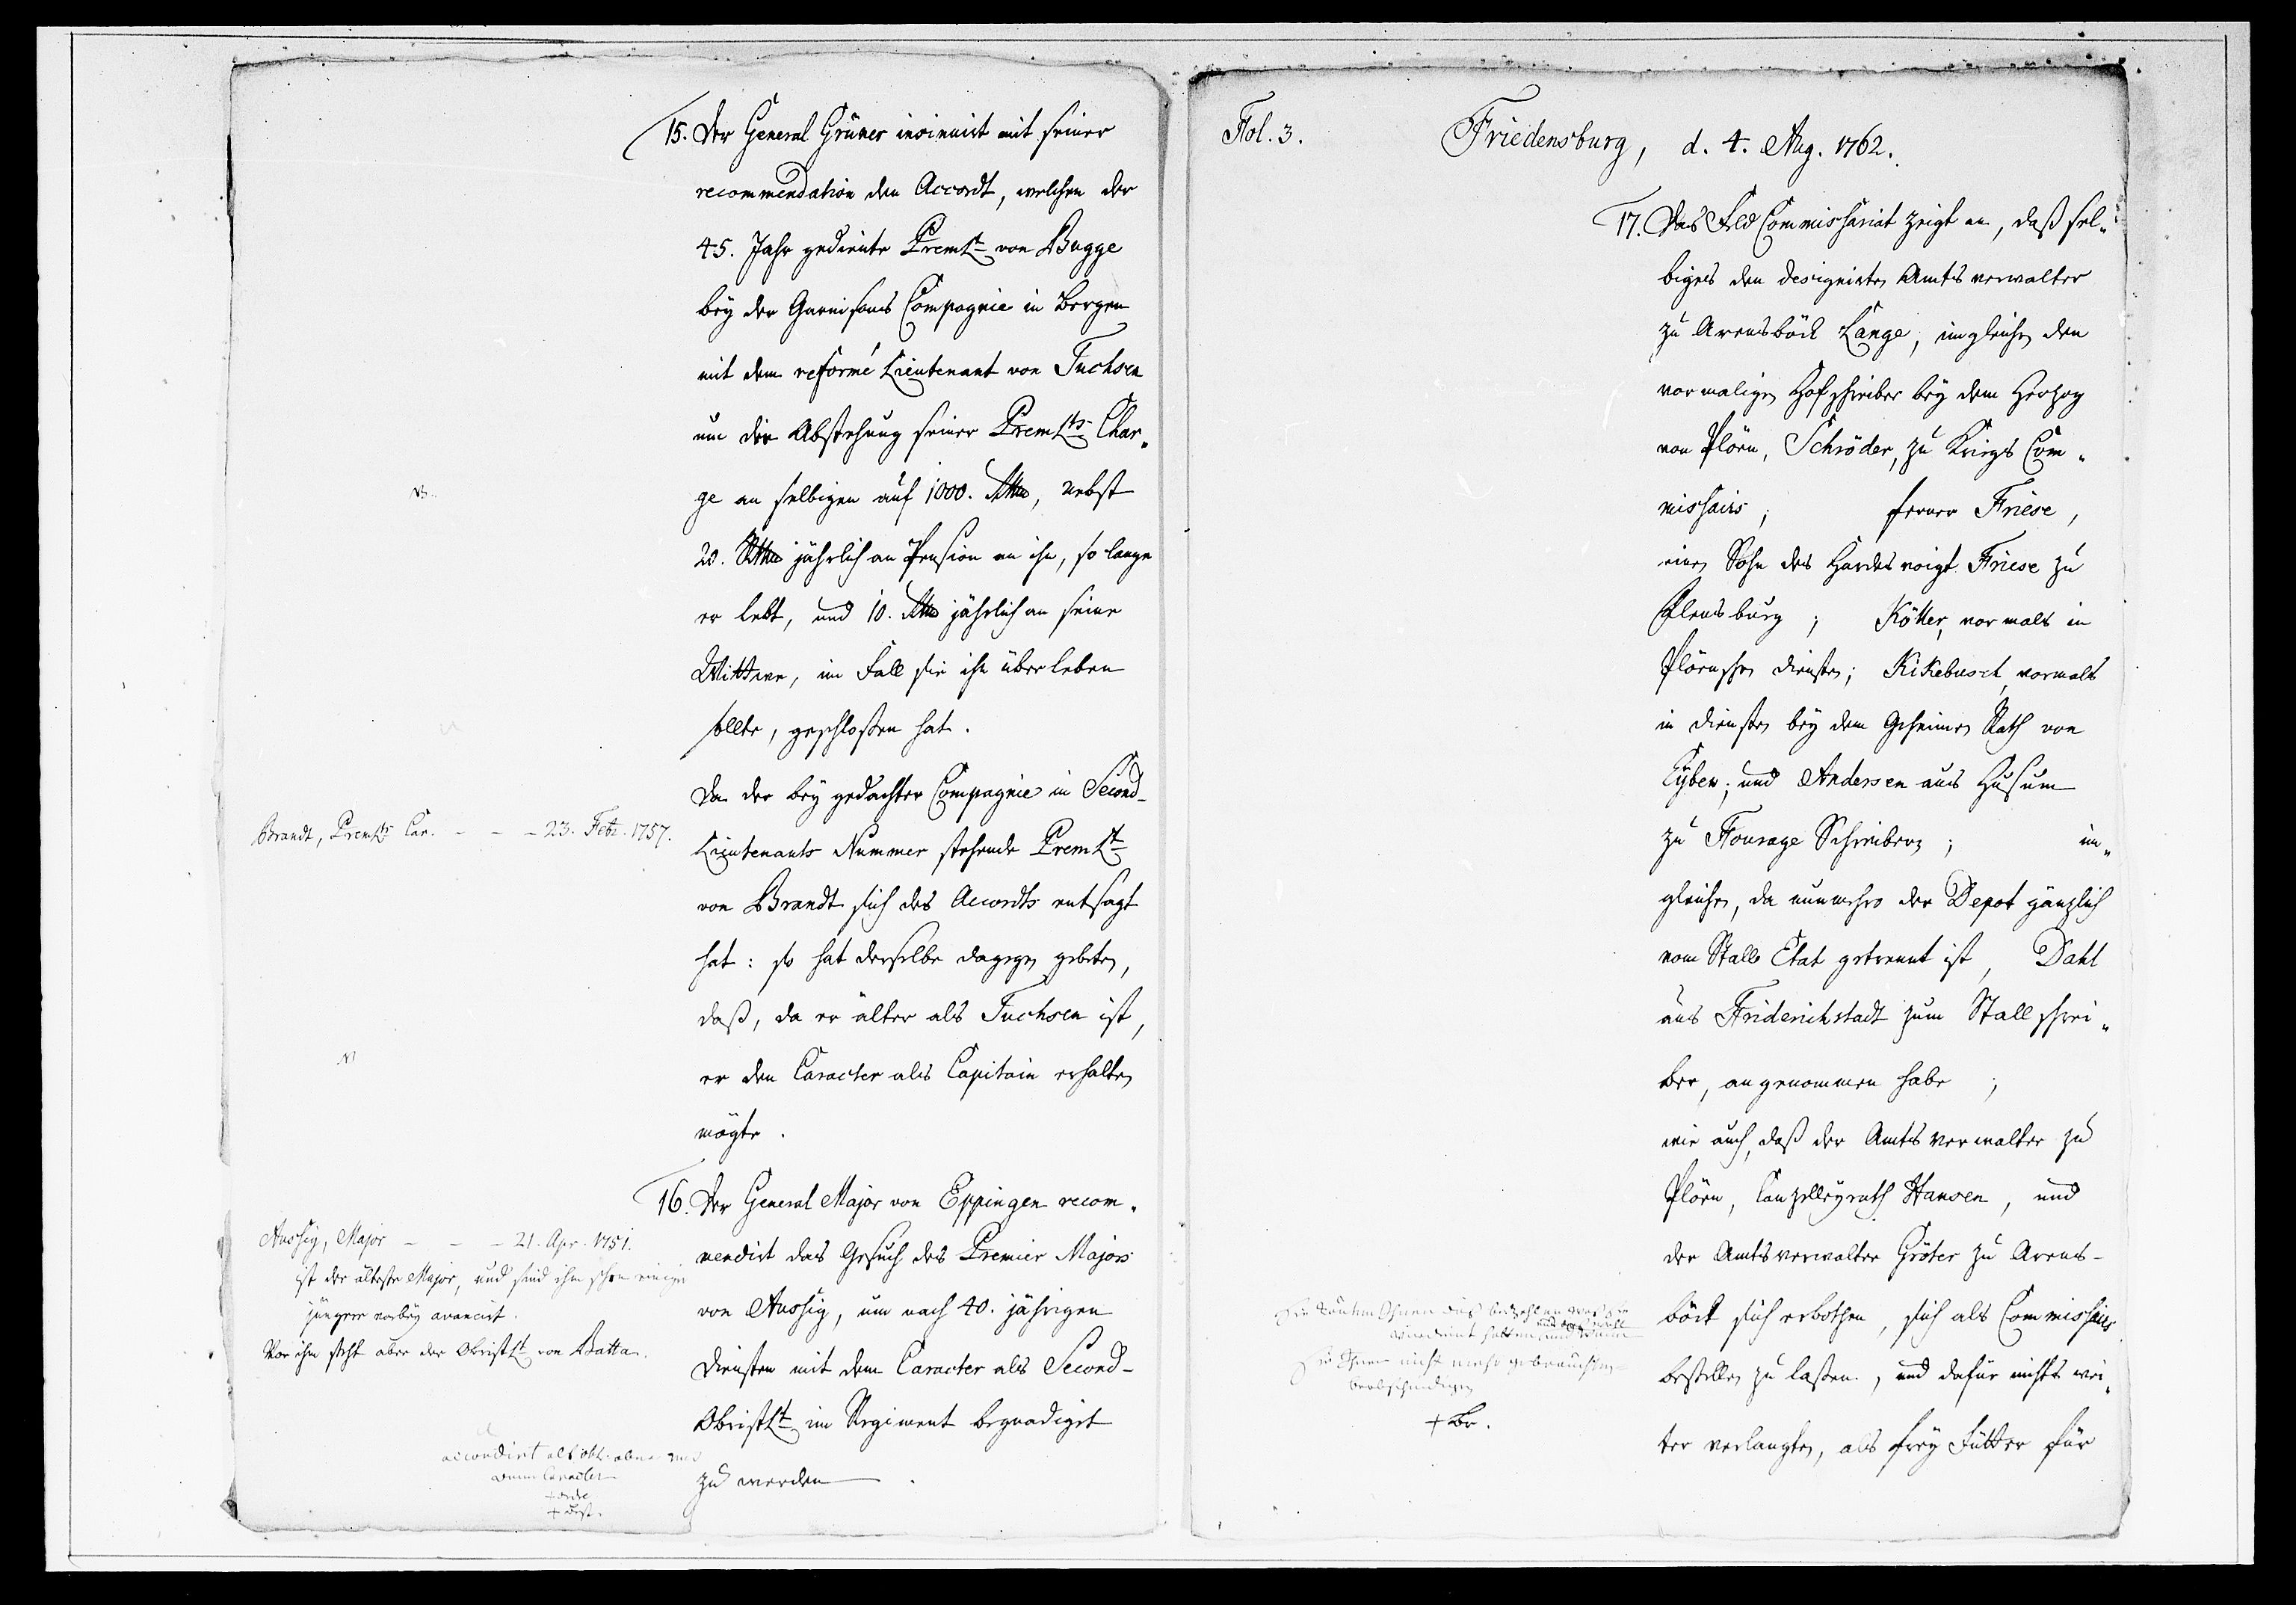 15. Der General Grüner insinuirt mit seiner
recommendation den Accordt, welchen der
45. Jahr gediente PremLt von Bugge
bey der Garnisons Compagnie in Bergen
mit dem reformé Lieutenant von Fuchsen
um die Abstehung seiner PremLts Char„
ge an selbigen auf 1000. Rthlr, nebst
NB.
20. Rthlr jährlich an Pension an ihn, so lange
er lebt, und 10. Rthlr jährlich an seine
Wittwe, im Fall sie ihn überleben
sollte, geschloßen hat.
Da der bey gedachter Compagnie in Second-
Brandt, PremLts Car. - - - 23. Febr. 1757.
Lieutenants Nummer stehende PremLt
von Brandt sich des Accordts entsagt
hat: so hat derselbe dagegen gebeten,
daß, da er älter als Fuchsen ist,
er den Caracter als Capitain erhalten
mögte.
16. Der General Major von Eppingen recom„
Aussig, Major - - - 21. Apr. 1751.
ist der älteste Major, und sind ihm schon einige
jüngere vorbey avancirt.
Vor ihm steht aber der ObristLt von Batta.
mendirt das Gesuch des Premier Majors
von Aussig, um nach 40. jährigen
Diensten mit dem Caracter als Second-
ObristLt im Regiment begnadiget
zu werden.
accordirt als
Caracter
+ ordre
+ Best.
Fol. 3.
Friedensburg, d. 4. Aug. 1762.
17. Das Feld Commissariat zeigt an, daß sel„
biges den designirten Amtsverwalter
zu Arensböck Lange, imgleichen den
vormaligen Hofschreiber bey dem Herzog
von Plöen, Schröder, zu Kriegs Com„
missairs; ferner Friese,
einen Sohn des Hardesvoigt Friese zu
Flensburg; Kötter, vormals in
Plöenschen Diensten; Kikebusch, vormals
in Diensten bey dem Geheimen Rath von
Eyben; und Andersen aus Husum
zu Fourage Schreibern; im„
gleichen, da nunmehro der Depot gänzlich
vom Stalls Etat getrennt ist, Dahl
aus Friderichstadt zum Stallschrei„
ber, angenommen habe;
wie auch, daß der Amtsverwalter zu
Plöen, Canzelleyrath Hansen, und
der Amtsverwalter Gröter zu Arens-
böck sich erbothen, sich als Commissairs
bestellen zu laßen, und dafür nichts wei„
ter verlangten, als frey Futter für
nicht mehr gebrauchten
+ Br.